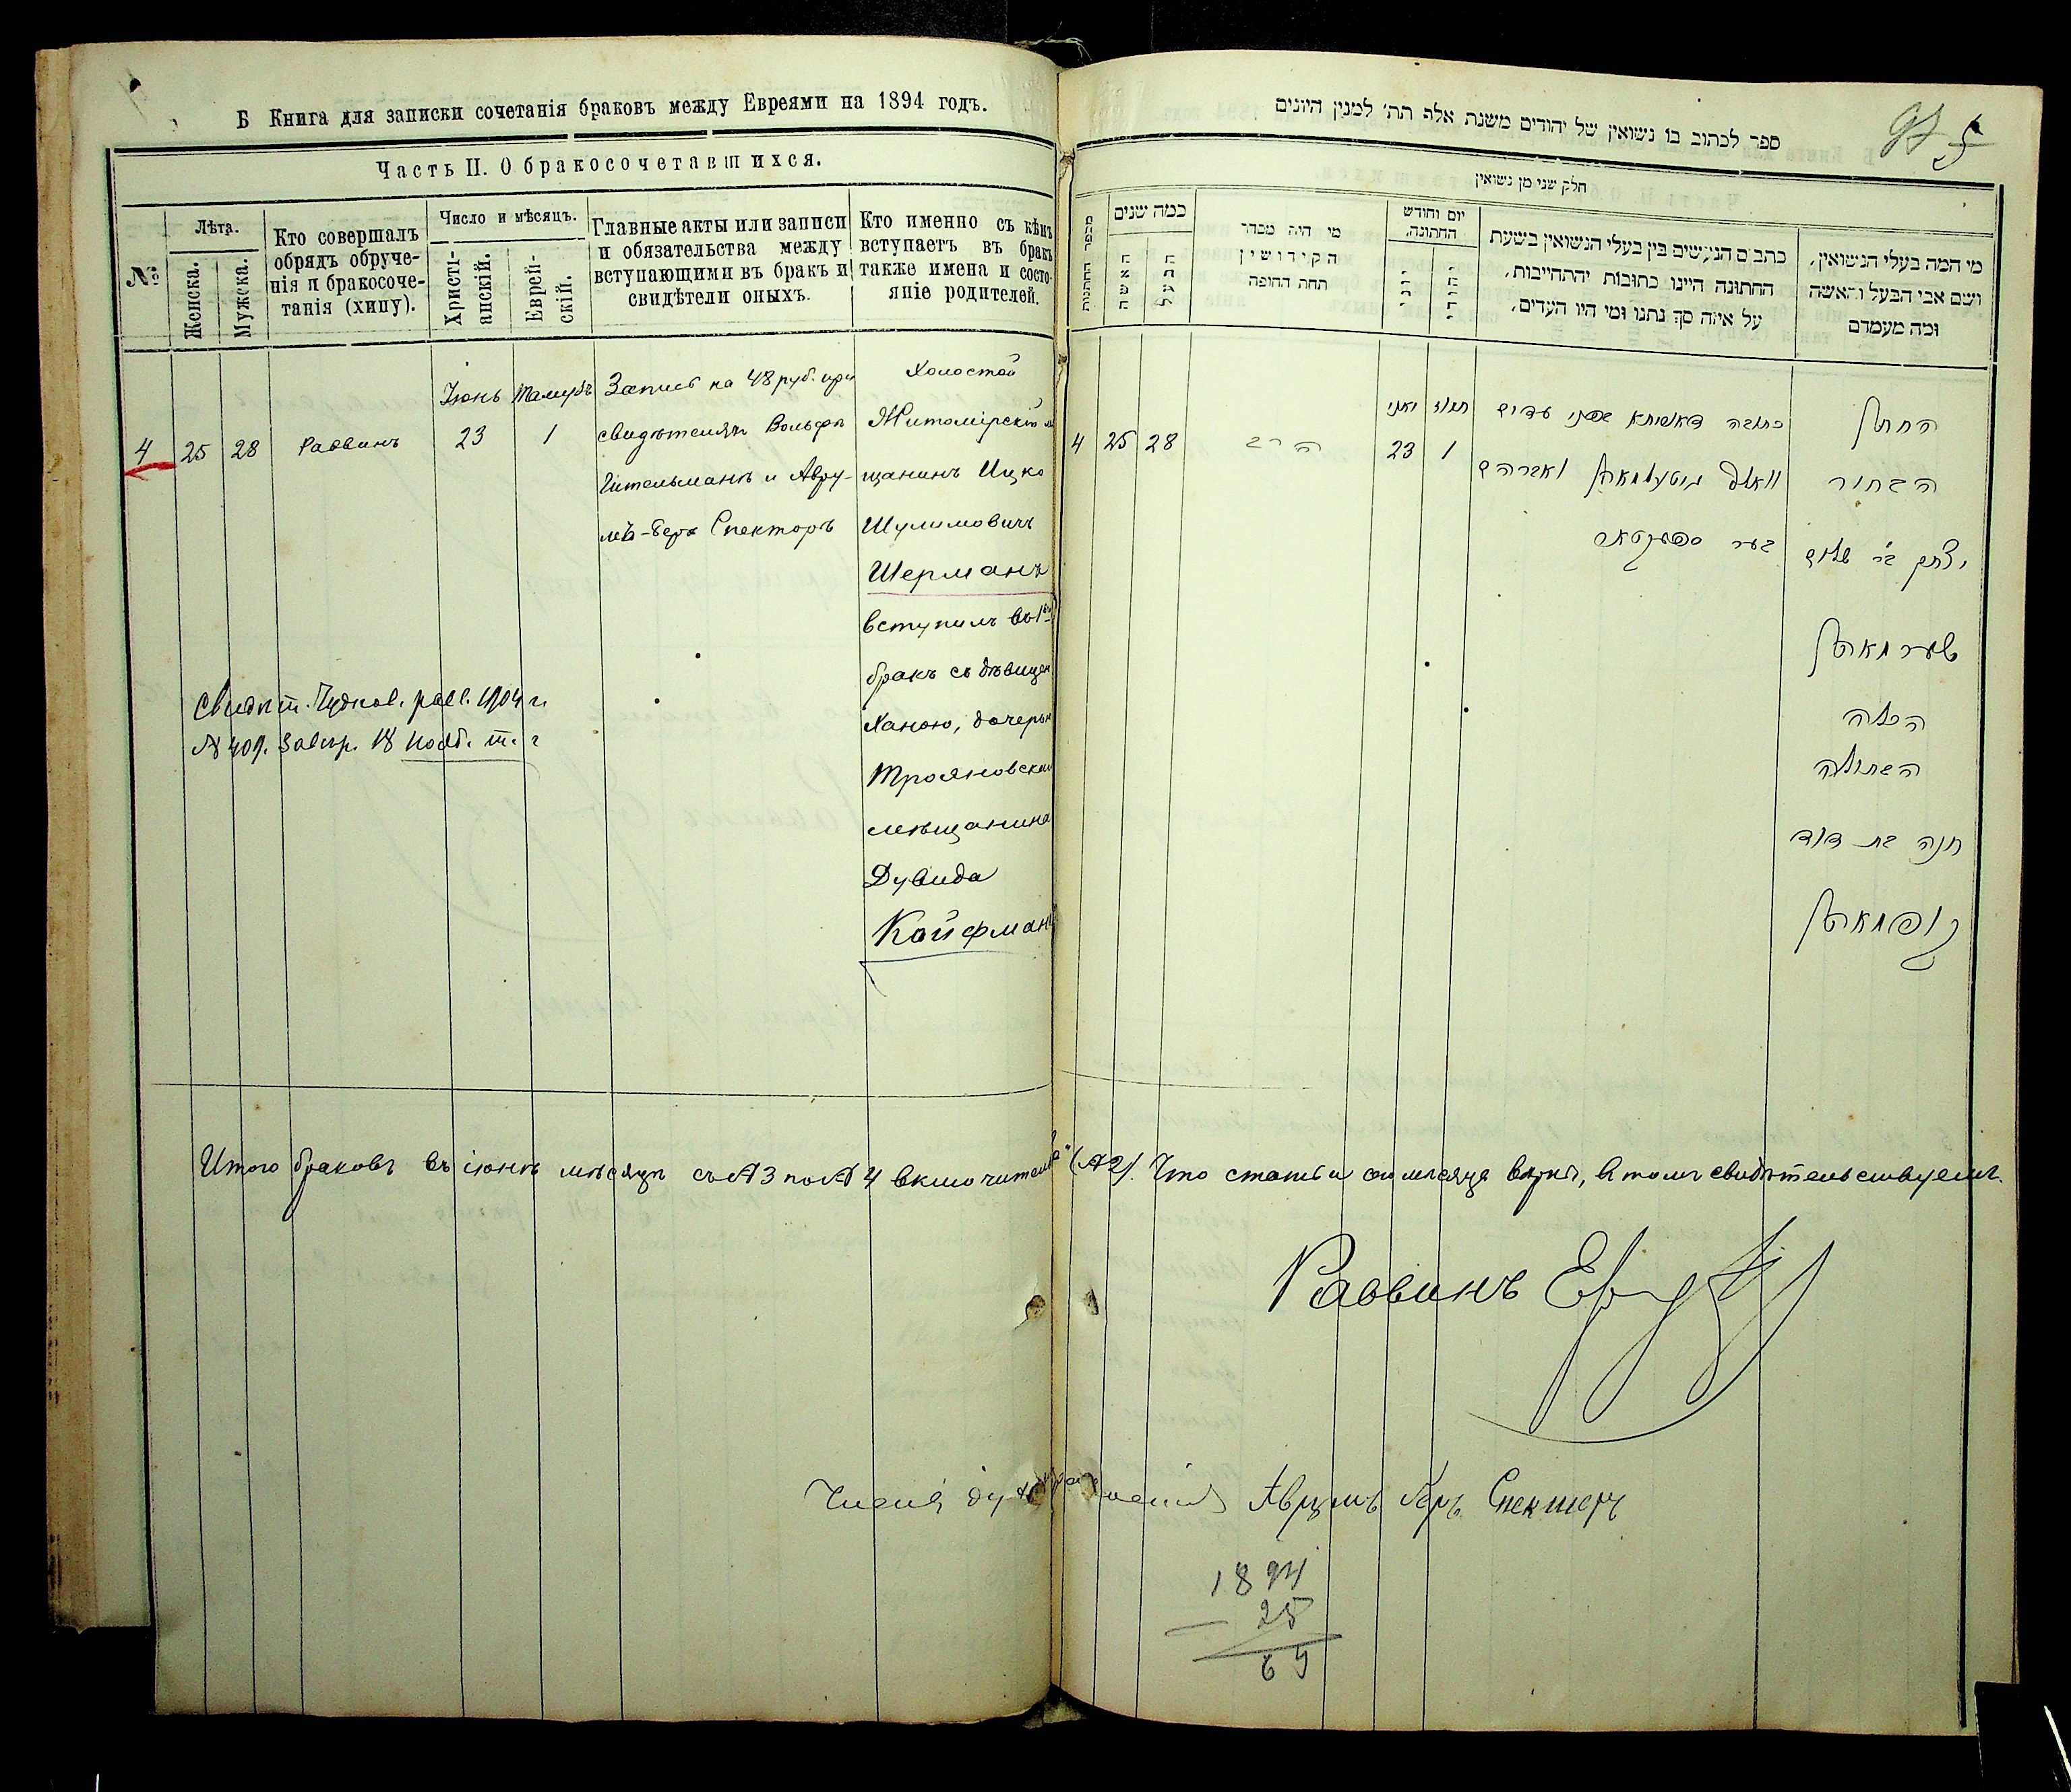 Б Книга для записки сочетанія браковъ между Евреями на 1894 годъ.
Часть II. О бракосочетавшихся.
№
Лѣта.
Женска.
Мужска.
Кто совершалъ
обрядъ обруче-
нія и бракосоче-
танія (хипу).
Число и мѣсяцъ.
Христі-
анскій.
Еврей-
скій.
Главные акты или записи
и обязательства между
вступающими въ бракъ и
свидѣтели оныхъ.
Кто именно съ кѣмъ
вступаетъ въ бракъ
также имена и состо-
яніе родителей.
4
25
28
Раввинъ
Іюнь
23
Тамузъ
1
Запись на 48 руб. при
свидѣтеляхъ Вольфъ
Гительманъ и Авру-
мъ-Беръ Спекторъ
Холостой
Житомірскій м
щанинъ Ицко
Шулимовичъ
Шерманъ
вступилъ въ 1й
бракъ съ дѣвицею
Ханою, дочерью
Трояновскаго
мѣщанина
Дувида
Койфмана
Свидѣт. Чуднов. равв. 1904 г.
№ 409. Завер. 18 нояб. т. г
Итого браковъ въ іюнѣ мѣсяцѣ съ № 3 по № 4 включительно
ספר לכתוב בו נשואין של יהודים משנת אלף תת׳ למנין היונים
95
חלק שני מן נשואין
מספר החתנות
כמה שנים
האשה
הבעל
מי היה מסדר
הקידושין
תחת החופה
יום וחודש
החתונה.
כתבים הנעשים בין בעלי הנשואין בשעת
החתונה היינו כתובות והתחייבות,
על איזה סך נתנו ומי היו העדים,
מי המה בעלי הנשואין,
ושם אבי הבעל והאשה
ומה מעמדם
4
25
28
הרב
יוני
23
תמוז
1
כתובה דאורתא בפני עדים
וואלף גיטעלמאן ואברהם
בער ספעקטאר
החתן
הבחור
יצחק בר׳ שלום
שערמאן
הכלה
הבתולה
חנה בת דוד
קופמאן
(№ 2). Что статьи сего мѣсяца вѣрны, въ томъ свидѣтельствуемъ.
Раввинъ
Аврумъ Беръ Спекторъ
1894
— 25
69